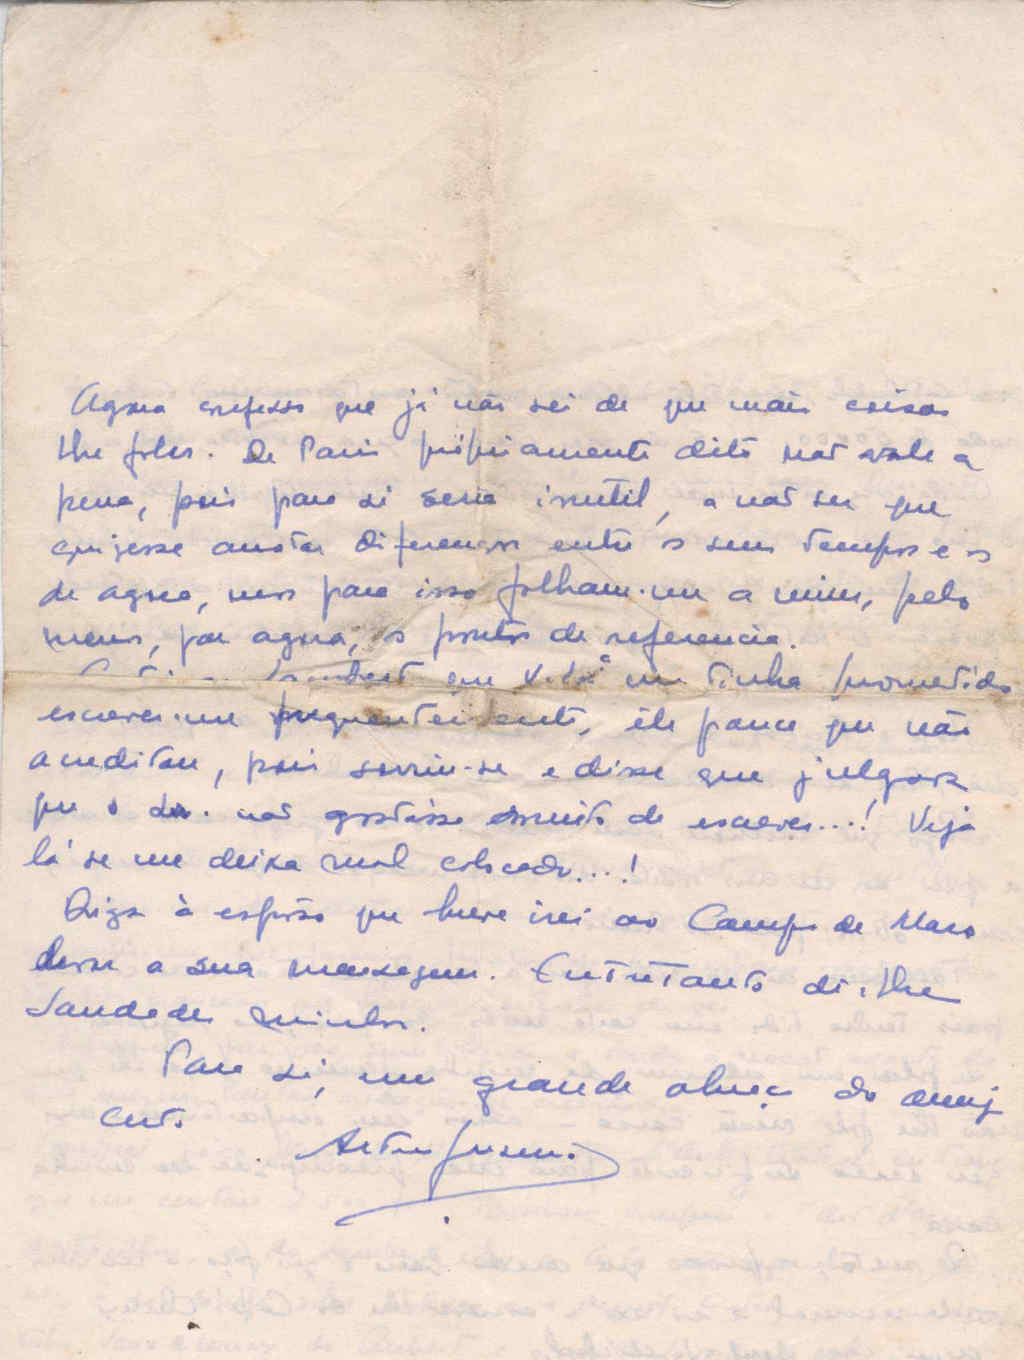 Agora confesso que já não sei de que mais coisas
lhe falar. De Paris própriamente dito não vale a
pena, pois para si seria inutil, a não ser que
quizesse anotar diferenças entre os seus tempos e os
de agora, mas para isso falham-me a mim, pelo
menos, por agora, os pontos de referencia.
que V. me tinha prometido
escrever-me frequentemente, êle parece que não
acreditou, pois sorriu-se e disse que julgava
que o Dr. não gostasse muito de escrever...! Veja
lá se me deixa mal colocado...!
Diga à esposa que breve irei ao Campo de Mars
dar a sua mensagem. Entretanto di-lhe
saudades minhas.
Para si, um grande abraço do amigo
certo
Artur